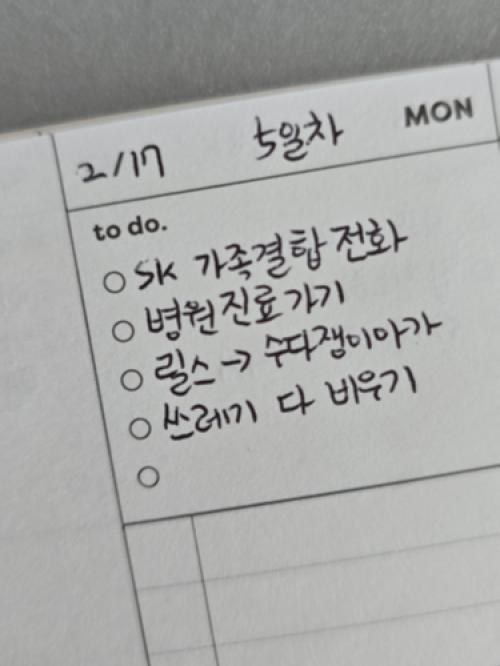 2/17 5일차 MON
to do.
SK 가족결합 전화
병원진료가기
릴스 → 수다쟁이아가
쓰레기 다 비우기